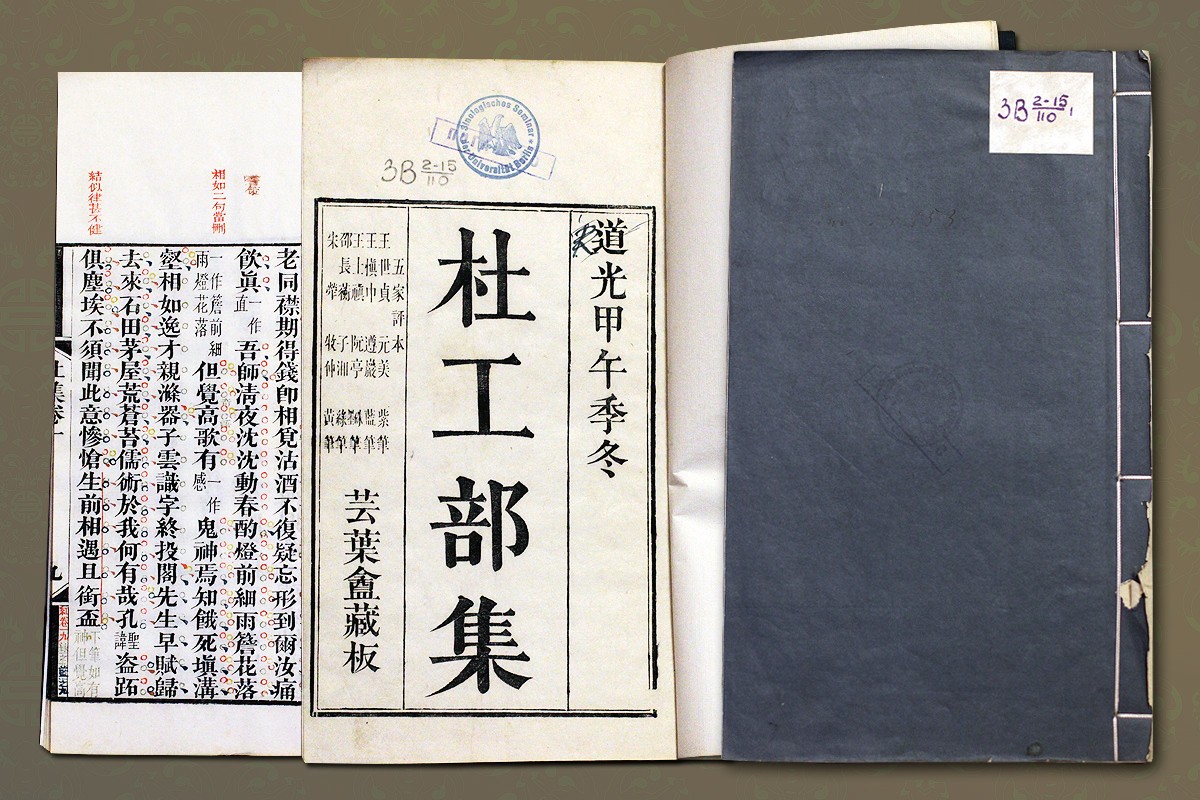 3B 2-15/110 1
3B 2-15/110
Sinologisches Seminar der Universität Berlin
道光甲午季冬
杜工部集
五家評本
王世貞元美 紫筆
王愼中遵巖 藍筆
王士禎阮亭
邵長蘅子湘 綠筆
宋犖牧仲 黃筆
芸葉盦藏板
相如二句當刪
結似律甚不健
老同襟期得錢卽相覓沽酒不復疑忘形到爾汝痛
飲眞一作直吾師淸夜沈沈動春酌燈前細雨簷花落
一作簷前細雨燈花落但覺高歌有一作感鬼神焉知餓死塡溝
壑相如逸才親滌器子雲識字終投閣先生早賦歸
去來石田茅屋荒蒼苔儒術於我何有哉孔聖諱盜跖
俱塵埃不須聞此意慘愴生前相遇且銜盃
下筆如有神但覺高
杜集卷一